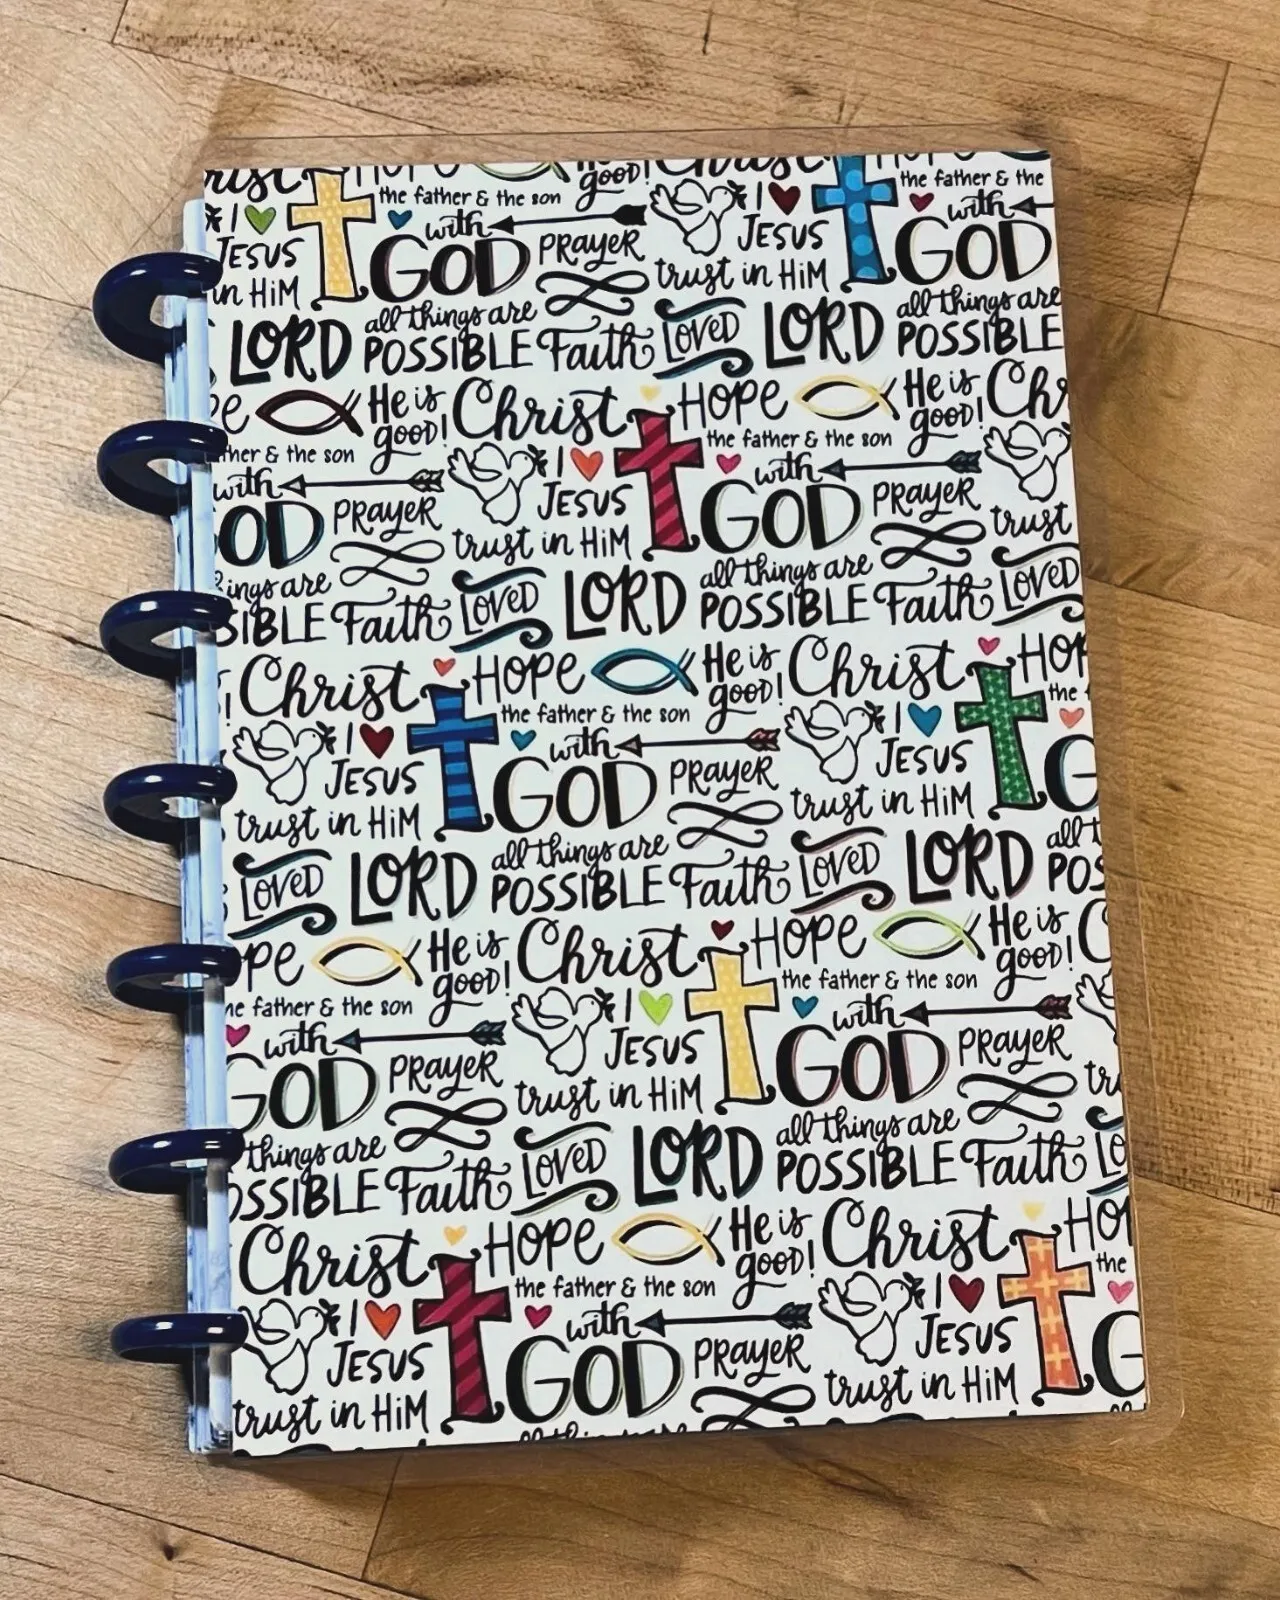 Christ HOPE He is good! Christ HOPE
the father & the son the father & the
I JESUS with GOD PRAYER I JESUS with GOD
in HiM trust in HiM
LORD all things are POSSIBLE Faith LOVED LORD all things are POSSIBLE
He is good! Christ HOPE He is good!
the son the father & the son
with PRAYER I JESUS with GOD PRAYER
trust in HiM trust
are POSSIBLE Faith LOVED LORD all things are POSSIBLE Faith LOVED
Christ HOPE He is good! Christ
the father & the son the
I JESUS with GOD PRAYER I JESUS
trust in HiM trust in HiM
LOVED LORD all things are POSSIBLE Faith LOVED LORD all
HOPE He is good! Christ HOPE He is good!
the father & the son the father & the son
with GOD PRAYER I JESUS with GOD PRAYER
trust in HiM
things are POSSIBLE Faith LOVED LORD all things are POSSIBLE Faith
Christ HOPE He is good! Christ
the father & the son the
I JESUS with GOD PRAYER I JESUS
trust in HiM trust in HiM